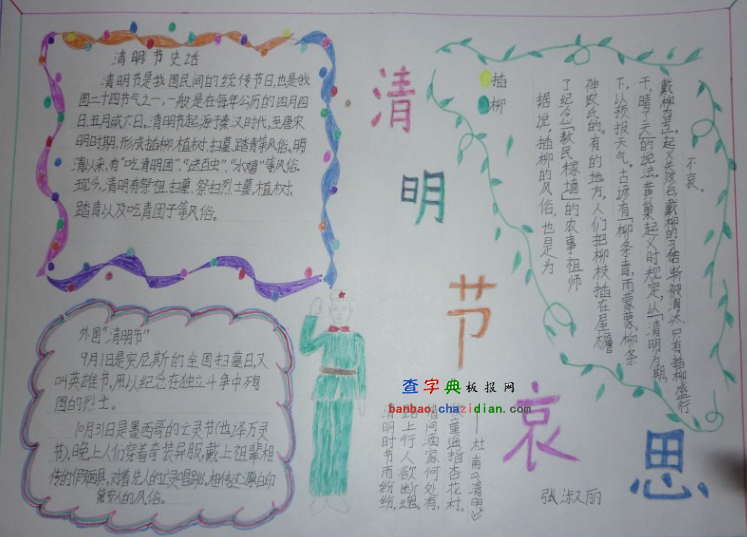 清明节史话
清明节是我国民间的统传节日,也是我
国二十四节气之一,一般是在每年公历的四月四
日、五月或六日。清明节起源于秦汉时代,至唐宋
明时期,形成插柳、植树、扫墓、踏青等风俗。明
清以来,有“吃青明团”、“送百虫”、
现今,清明有祭祖、扫墓、祭扫烈士墓、植树、
踏青以及吃青团子等风俗。
外国“清明节”
9月1日是突尼斯的全国扫墓日,又
叫英雄节,用以纪念在独立斗争中殉
国的烈士。
10月31日是墨西哥的亡灵节(也译万灵
节),晚上人们穿着奇装异服,戴上祖辈相
传的假面具,对着死人的亡灵唱歌,相传
人的风俗。
清
明
节
哀
思
插柳
据说,插柳的风俗,也是为
了纪念「教民稼墙」的农事祖师
神农氏的。有的地方,人们把柳枝插在屋檐
下,以预报天气。古谚有「柳条青,雨蒙蒙,柳条
干,晴了天」的说法。黄巢起义时规定,以「清明为期,
戴柳为号」。起义失败后,戴柳的习俗渐被淘汰,只有插柳盛行
不衰。
清明时节雨纷纷,
路上行人欲断魂。
借问酒家何处有,
牧童遥指杏花村。
——杜甫《清明》
张淑丽
查字典板报网
banbao.chazidian.com